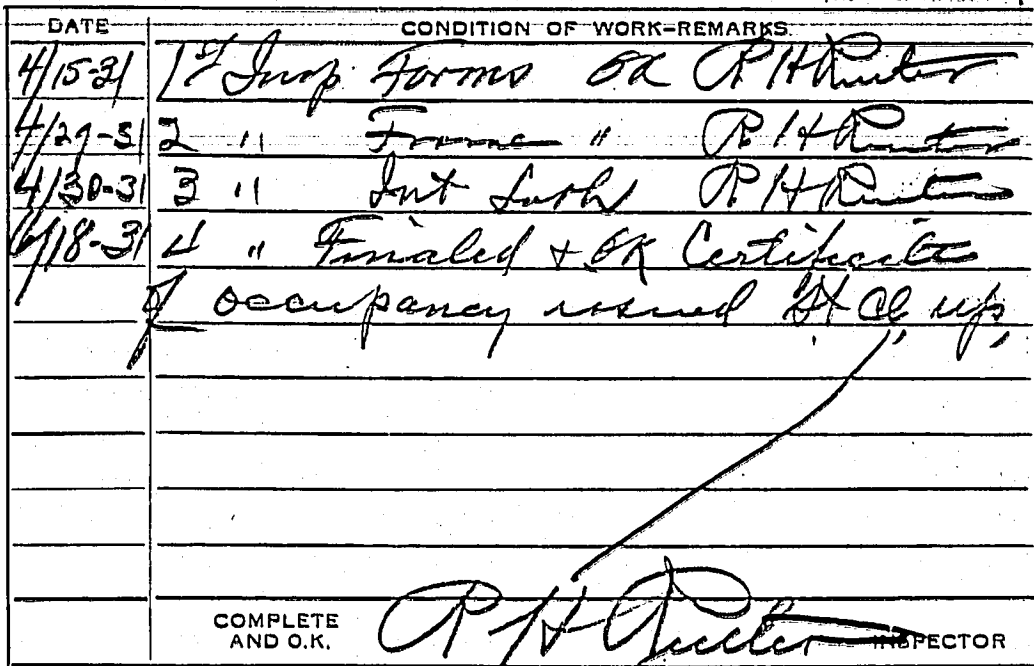 DATE CONDITION OF WORK-REMARKS
4/15-31 1st Insp. Forms OK R H Reuter
4/29-31 2 " Frame " R H Reuter
4/30-31 3 " Int Laths R H Reuter
6/18-31 4 " Finaled + OK Certificate
of occupancy issued St Cl up,
COMPLETE
AND O.K. R H Reuter INSPECTOR